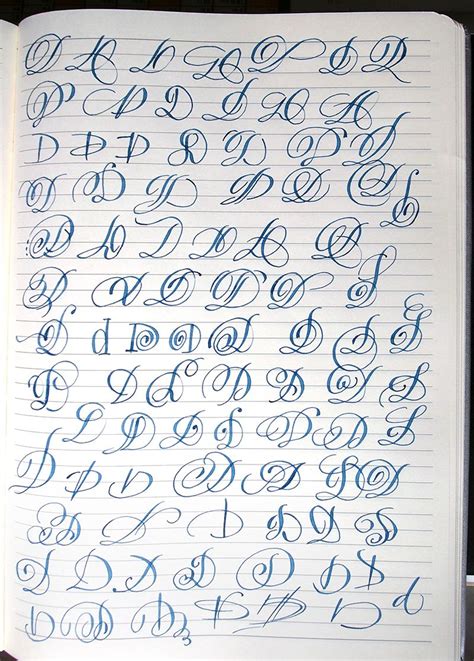 D D D D D D D
D D D D D D D
D D D D D D D
D D D D D D D
D D D D D D
D D D D D D
D d D D D D D D
D D D D D D D D
D D D D D D D D
D D D D D D D
D D D D D D D
D D D D D D D D
D D D D D D d